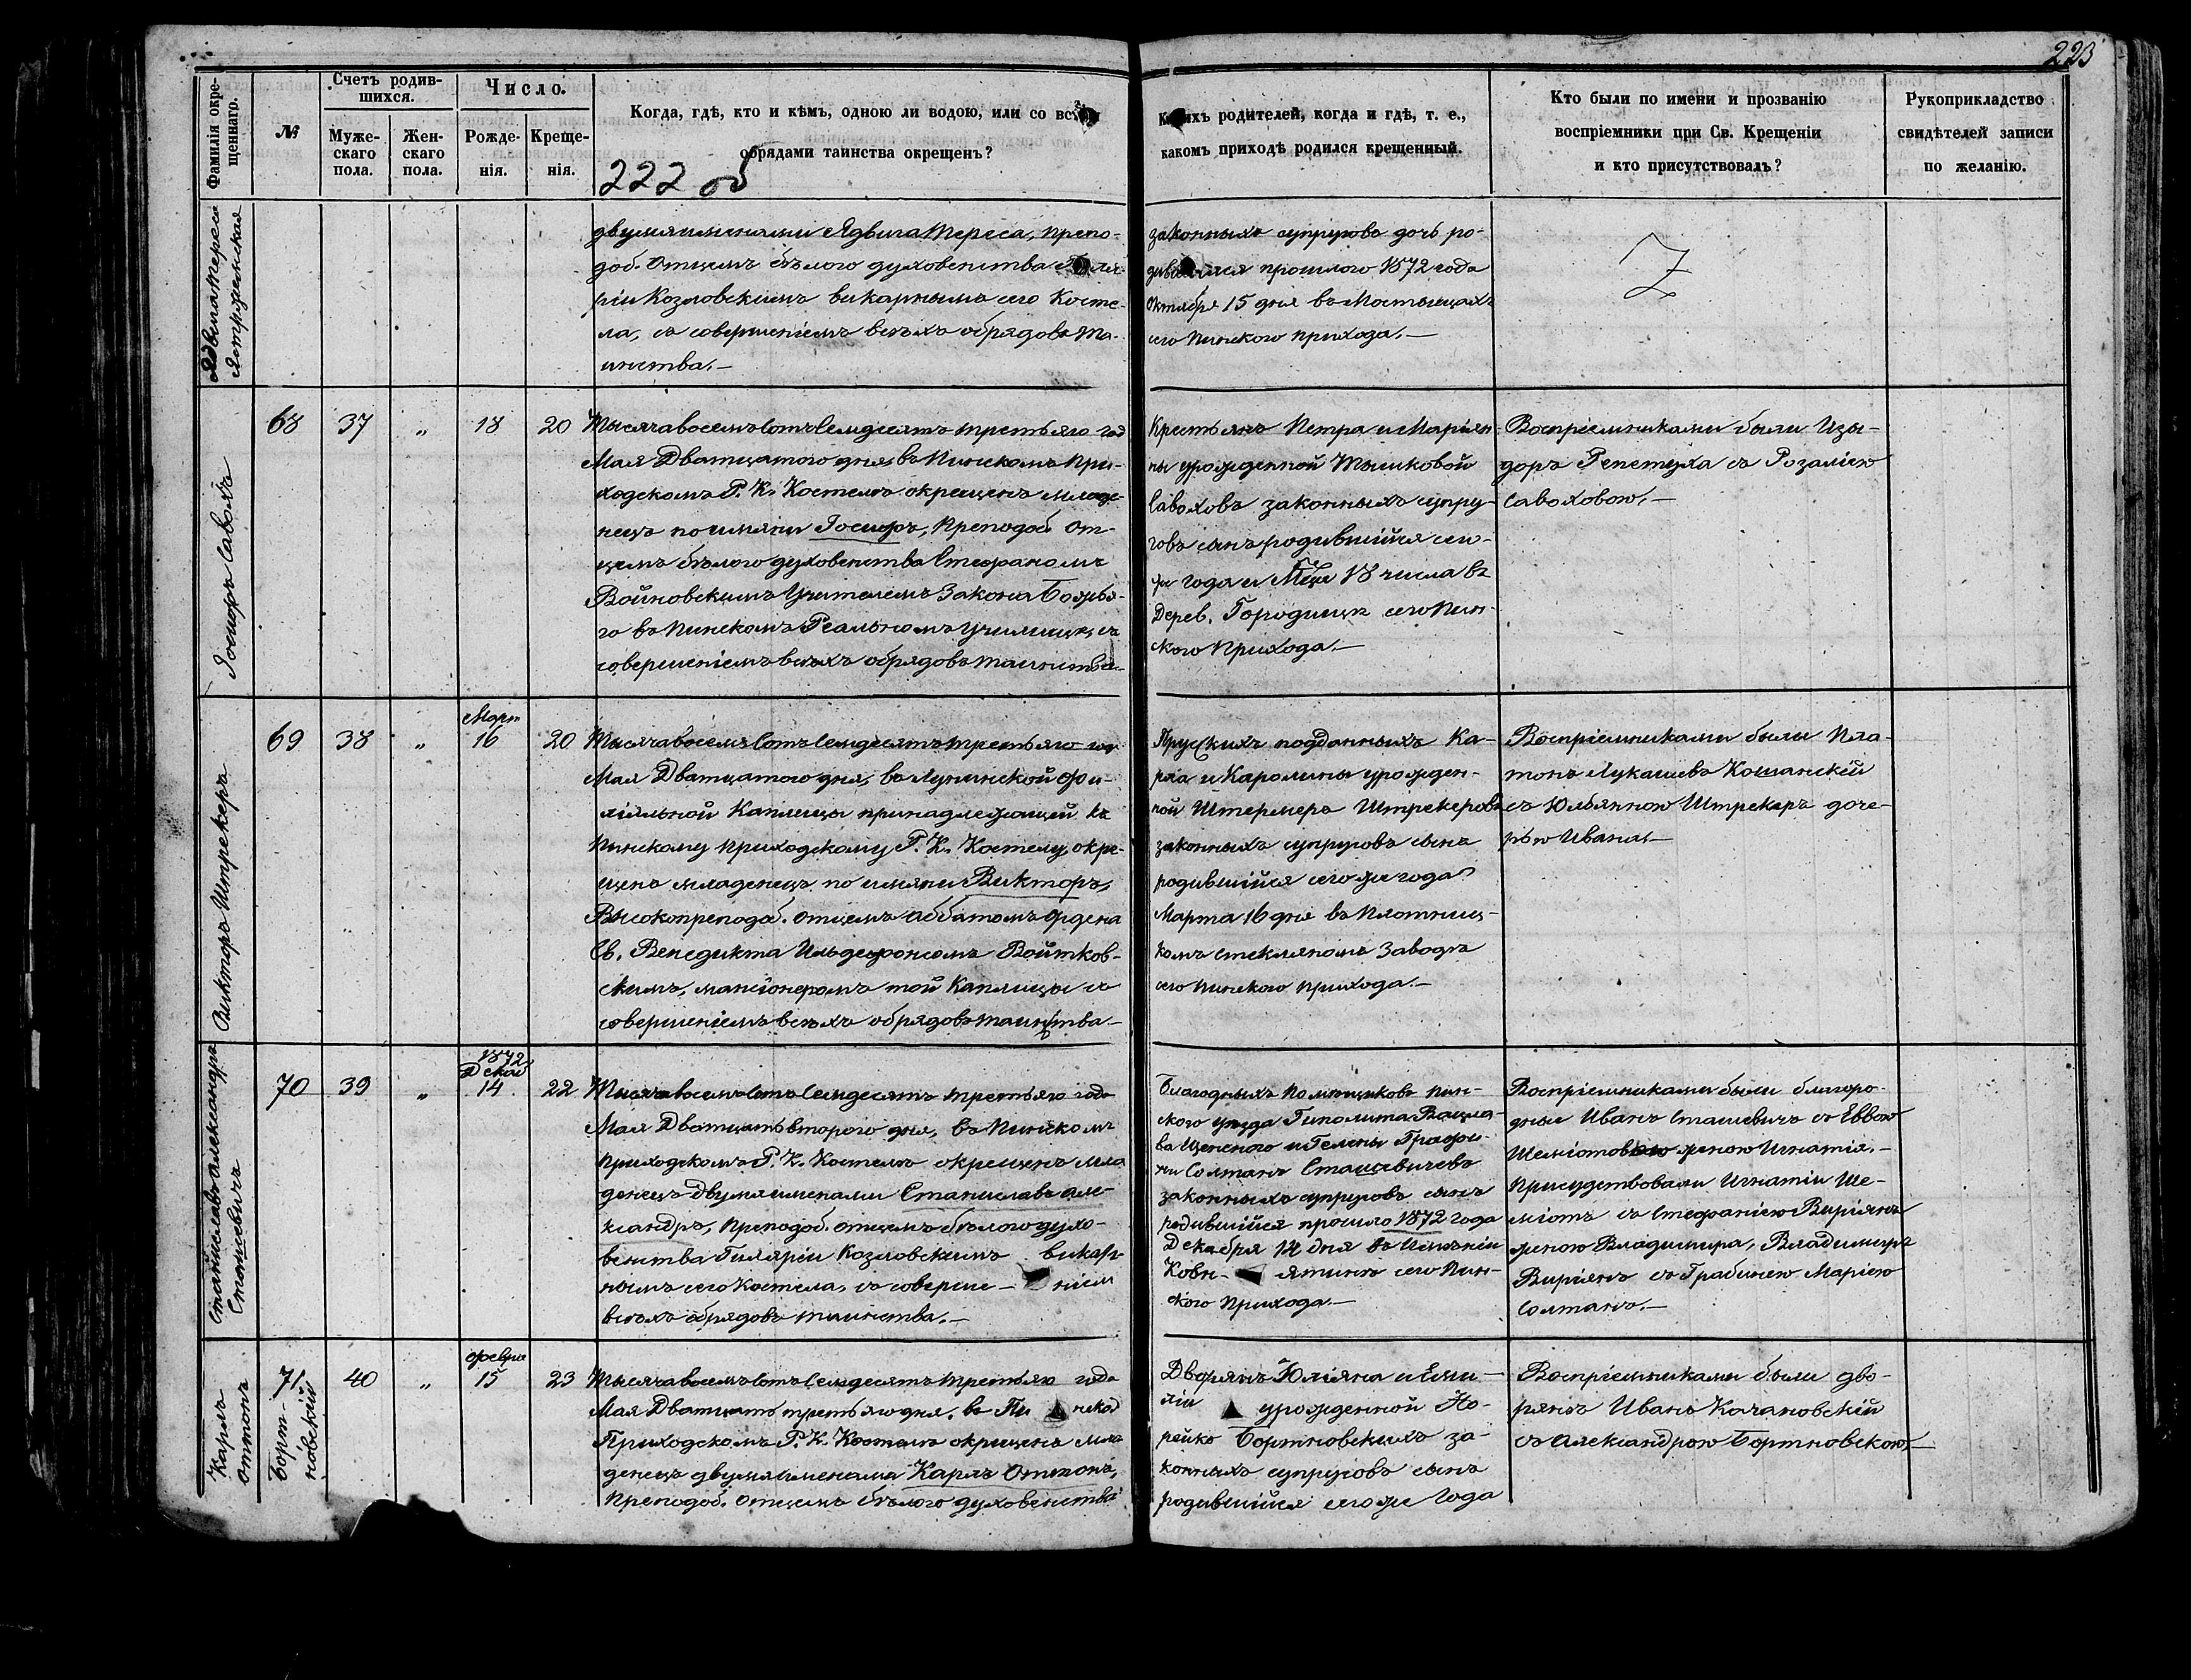 223
Фамилія окре-
щеннаго.
№
Счетъ родив-
шихся.
Муже-
скаго
пола.
Жен-
скаго
пола.
Число.
Рожде-
нія.
Креще-
нія.
Когда, гдѣ, кто и кѣмъ, одною ли водою, или со
обрядами таинства окрещенъ?
222 об
родителей, когда и гдѣ, т. е.,
какомъ приходѣ родился крещенный.
Кто были по имени и прозванію
воспріемники при Св. Крещеніи
и кто присутствовалъ?
Рукоприкладство
свидѣтелей записи
по желанію.
Ядвига Тереса
Ястрженская
двумя именами Ядвига Тереса, Препо-
доб. Отцемъ бѣлого духовенства
ріи Козловскимъ викарнымъ сего Косте-
ла, съ совершеніемъ всѣхъ обрядовъ та-
инства.—
законныхъ супруговъ дочь ро-
прошлого 1872 года
Октября 15 дня въ Мостыщахъ
сего Пинского прихода.—
Іосифъ Савохъ
68
37
„
18
20
Тысяча восемъ Сотъ Семдесятъ третьяго год
Мая Дватцатого дня, въ Пинскомъ При-
ходскомъ Р. К. Костелѣ окрещенъ младе-
нецъ по имяни Іосифъ, Преподоб От-
цемъ бѣлого духовенства Стефаномъ
Войновскимъ Учителемъ Закона Божья-
го въ Пинскомъ Реальномъ училищѣ, съ
совершеніемъ всѣхъ обрядовъ таинства.
Крестьянъ Петра и Маріян-
ны урожденной Тышковой
Савоховъ законныхъ супру-
говъ сынъ родившійся сего-
же года и Мца 18 числа въ
Дерев. Городищѣ сего Пин-
ского Прихода.—
Воспріемниками были Изы-
доръ Репетуха съ Розаліею
Савоховою.—
Викторъ Штрекеръ
69
38
„
Март
16
20
Тысяча восемъ Сотъ Семдесятъ третьяго год
Мая Дватцатого дня, въ Лунинской фи-
ліяльной Каплицы принадлежащей къ
Пинскому приходскому Р. К. Костелу, окре-
щенъ младенецъ по имяни Викторъ,
Высокопреподоб. Отцемъ Аббатомъ Ордена
Св. Венедикта Ильдефонсомъ Войтков-
скимъ, мансіонеромъ той Каплицы съ
совершеніемъ всѣхъ обрядовъ таинства—
Прускихъ подданныхъ Ка-
рла и Каролины урожден-
ной Штермеръ Штрекеровъ
законныхъ супруговъ сынъ
родившійся сего же года
Марта 16 дня въ Плотниц-
комъ стекляномъ Заводѣ
сего Пинского прихода.—
Воспріемниками были Пла-
тонъ Лукашевъ Кошанскій
съ Юльянною Штрекеръ доче-
рью Ивана.—
Станиславъ Александръ
Сташевичъ
70
39
„
1872
Декаб
14
22
Тысяча восемъ Сотъ Семдесятъ третьяго года
Мая Дватцать второго дня, въ Пинскомъ
приходскомъ Р. К. Костелѣ окрещенъ мла
денецъ двумя именами Станиславъ Але-
ксандръ, Преподоб. Отцемъ бѣлого духо-
венства Гиляріи Козловскимъ викар-
нымъ сего Костела, съ соверше- ніем
всѣхъ обрядовъ таинства.—
Благодныхъ Помѣщиковъ Пин-
ского уѣзда Гиполита Вацла-
ва Щенсного и Гелены Графи-
ни Солтанъ Сташевичевъ
законныхъ супруговъ сынъ
родившійся прошло 1872 года
Декабря 14 дня въ Имѣніи
Ковн- ятинѣ сего Пин-
ского прихода.—
Воспріемниками были благоро-
дные Иванъ Сташевичъ съ Еввою
Шеміотовою женою Игнатія.—
Присудствовали Игнатіи Ше-
міотъ съ Стефаніею Виріянъ
женою Владимира, Владимиръ
Виріянъ съ Грабинею Маріею
Солтанъ.—
Карлъ
Оттонъ
Борт-
новскій
71.
40
„
Февра
15
23
Тысяча восемъ Сотъ Семдесятъ третьяго года
Мая Дватцать третьяго дня, въ Пи нском
Приходскомъ Р. К. Костелѣ окрещенъ мла
денецъ двумя именами Карлъ Оттонъ,
Преподоб. Отцемъ бѣлого духовенства
Дворянъ Юліяна и Еми-
ліи урожденной Но-
рейко Бортновскихъ за-
конныхъ супруговъ сынъ
родившійся сего же года
Воспріемниками были дво-
рянъ Иванъ Качановскій
съ Александрою Бортновскою.—